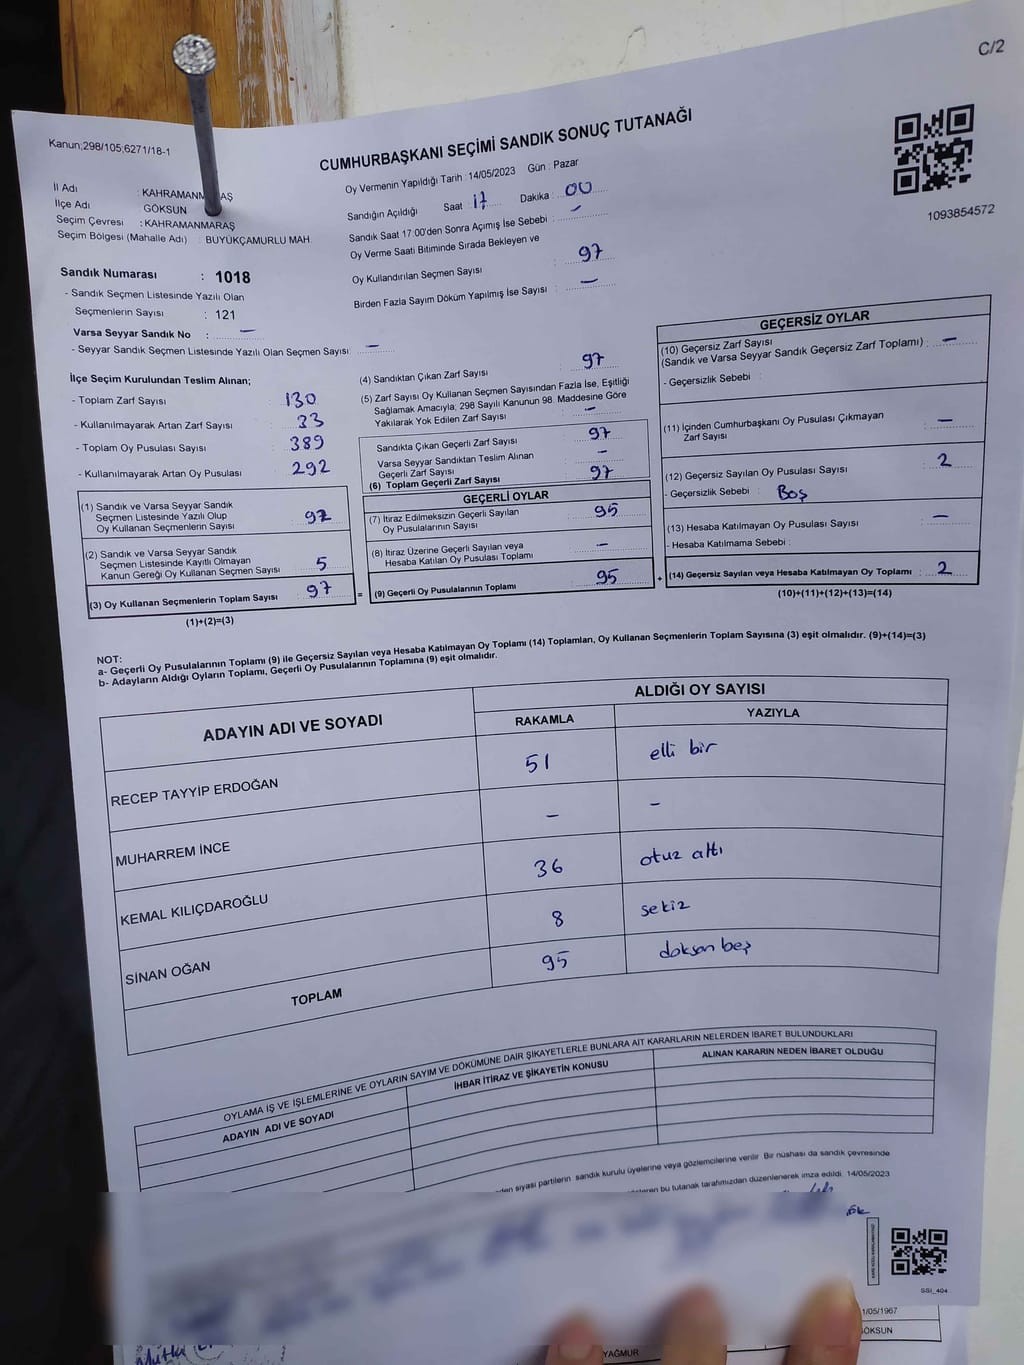 C/2
Kanun;298/105;6271/18-1
CUMHURBAŞKANI SEÇİMİ SANDIK SONUÇ TUTANAĞI
1093854572
İl Adı : KAHRAMANMARAŞ
İlçe Adı GÖKSUN
Seçim Çevresi : KAHRAMANMARAŞ
Seçim Bölgesi (Mahalle Adı) : BÜYÜKÇAMURLU MAH.
Oy Vermenin Yapıldığı Tarih : 14/05/2023 Gün : Pazar
Sandığın Açıldığı Saat 17 Dakika : 00
Sandık Saat 17:00'den Sonra Açımış İse Sebebi : -
Oy Verme Saati Bitiminde Sırada Bekleyen ve
Oy Kullandırılan Seçmen Sayısı : 97
Birden Fazla Sayım Döküm Yapılmış İse Sayısı : -
Sandık Numarası : 1018
- Sandık Seçmen Listesinde Yazılı Olan
Seçmenlerin Sayısı : 121
Varsa Seyyar Sandık No : -
- Seyyar Sandık Seçmen Listesinde Yazılı Olan Seçmen Sayısı : -
İlçe Seçim Kurulundan Teslim Alınan;
- Toplam Zarf Sayısı : 130
- Kullanılmayarak Artan Zarf Sayısı : 33
- Toplam Oy Pusulası Sayısı : 389
- Kullanılmayarak Artan Oy Pusulası : 292
(1) Sandık ve Varsa Seyyar Sandık
Seçmen Listesinde Yazılı Olup
Oy Kullanan Seçmenlerin Sayısı 92
(2) Sandık ve Varsa Seyyar Sandık
Seçmen Listesinde Kayıtlı Olmayan
Kanun Gereği Oy Kullanan Seçmen Sayısı 5
(3) Oy Kullanan Seçmenlerin Toplam Sayısı 97
(1)+(2)=(3)
(4) Sandıktan Çıkan Zarf Sayısı : 97
(5) Zarf Sayısı Oy Kullanan Seçmen Sayısından Fazla İse, Eşitliği
Sağlamak Amacıyla, 298 Sayılı Kanunun 98. Maddesine Göre
Yakılarak Yok Edilen Zarf Sayısı : -
Sandıkta Çıkan Geçerli Zarf Sayısı : 97
Varsa Seyyar Sandıktan Teslim Alınan
Geçerli Zarf Sayısı : -
(6) Toplam Geçerli Zarf Sayısı 97
GEÇERLİ OYLAR
(7) İtiraz Edilmeksizin Geçerli Sayılan
Oy Pusulalarının Sayısı : 95
(8) İtiraz Üzerine Geçerli Sayılan veya
Hesaba Katılan Oy Pusulası Toplamı : -
= (9) Geçerli Oy Pusulalarının Toplamı 95
GEÇERSİZ OYLAR
(10) Geçersiz Zarf Sayısı
(Sandık ve Varsa Seyyar Sandık Geçersiz Zarf Toplamı) : -
- Geçersizlik Sebebi :
(11) İçinden Cumhurbaşkanı Oy Pusulası Çıkmayan
Zarf Sayısı : -
(12) Geçersiz Sayılan Oy Pusulası Sayısı : 2
- Geçersizlik Sebebi : Boş
(13) Hesaba Katılmayan Oy Pusulası Sayısı : -
- Hesaba Katılmama Sebebi :
+ (14) Geçersiz Sayılan veya Hesaba Katılmayan Oy Toplamı : 2
(10)+(11)+(12)+(13)=(14)
NOT:
a- Geçerli Oy Pusulalarının Toplamı (9) ile Geçersiz Sayılan veya Hesaba Katılmayan Oy Toplamı (14) Toplamları, Oy Kullanan Seçmenlerin Toplam Sayısına (3) eşit olmalıdır. (9)+(14)=(3)
b- Adayların Aldığı Oyların Toplamı, Geçerli Oy Pusulalarının Toplamına (9) eşit olmalıdır.
ADAYIN ADI VE SOYADI ALDIĞI OY SAYISI
RAKAMLA YAZIYLA
RECEP TAYYİP ERDOĞAN 51 elli bir
MUHARREM İNCE - -
KEMAL KILIÇDAROĞLU 36 otuz altı
SİNAN OĞAN 8 sekiz
TOPLAM 95 doksan beş
OYLAMA İŞ VE İŞLEMLERİNE VE OYLARIN SAYIM VE DÖKÜMÜNE DAİR ŞİKAYETLERLE BUNLARA AİT KARARLARIN NELERDEN İBARET BULUNDUKLARI
ADAYIN ADI VE SOYADI İHBAR İTİRAZ VE ŞİKAYETİN KONUSU ALINAN KARARIN NEDEN İBARET OLDUĞU
siyasi partilerin sandık kurulu üyelerine veya gözlemcilerine verilir. Bir nüshası da sandık çevresinde
bu tutanak tarafımızdan düzenlenerek imza edildi. 14/05/2023
SSI_404
1/05/1967
GÖKSUN
YAĞMUR